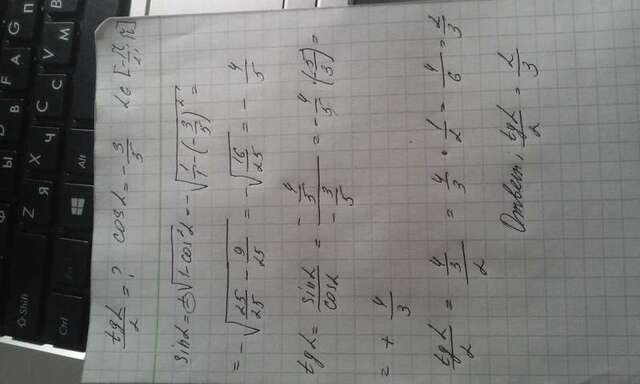 Shift
Ф Ы В А П
Z Я X Ч C С V М B
Ctrl Fn Alt
tgα/2 = ? cosα = -3/5 α ∈ [-π/2; π]
sinα = ±√(1-cos²α) = -√(1/1-(-3/5)²) =
= -√(25/25 - 9/25) = -√(16/25) = - 4/5
tgα = sinα/cosα = (-4/5)/(-3/5) = -4/5 · (-5/3) =
= + 4/3
tgα/2 = (4/3)/2 = 4/3 · 1/2 = 4/6 = 2/3
Ответ: tgα/2 = 2/3